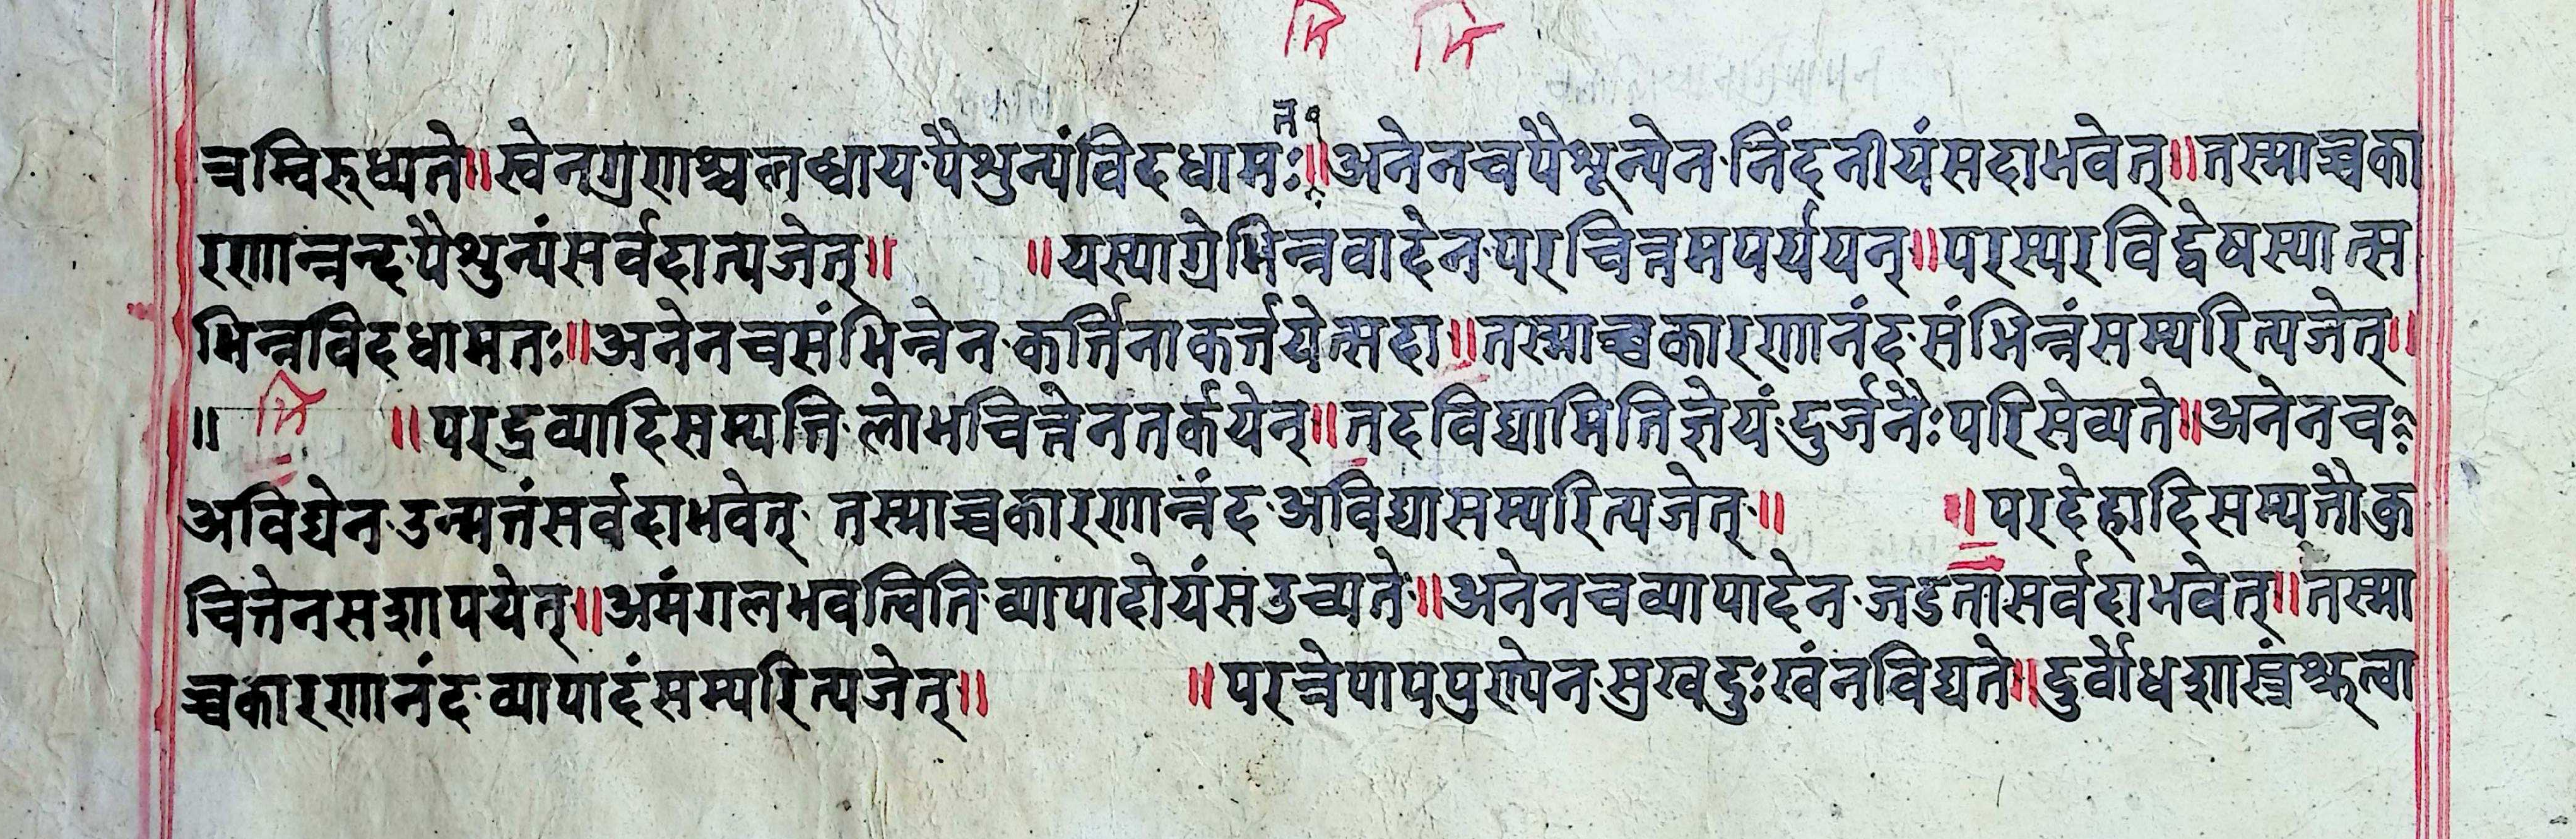 मि मि
त
च्चम्विरुध्यते॥स्वेनग्रणाश्चलब्धाय·पैशुन्यंविदधामः॥अनेनचपैशून्येन·निंदनीयंसदाभवेत्॥तस्माच्चका
रणान्नन्द·पैशुन्यंसर्वदात्यजेत्॥ ॥यस्याग्रेभिन्नवादेन·परचित्तमपर्ययन्॥परस्परविद्वेषस्यात्स
भिन्नविदधामतः॥अनेनचसंभिन्नेन·कर्त्तिनाकर्त्तयेत्सदा॥तस्माच्चकारणानंद·संभिन्नंसम्परित्यजेत्॥
॥ मि ॥परद्रव्यादिसम्पत्ति·लोभचित्तेनतर्कयेत्॥तदविद्यामितिज्ञेयं·दुर्जनैःपरिसेव्यते॥अनेनचः
अविद्येन·उन्मत्तंसर्वदाभवेत्· तस्माच्चकारणान्नंद·अविद्यासम्परित्यजेत्·॥ ॥परदेहादिसम्पत्तौक्रु
चित्तेनसशापयेत्॥अमंगलभवत्विति·व्यापादोयंसउच्यते·॥अनेनचव्यापादेन·जडतासर्वदाभवेत्॥तस्मा
च्चकारणानंद·व्यापादंसम्परित्यजेत्॥ ॥परत्रेपापपुण्येन·सुखदुःखंनविद्यते॥दुर्बोधशास्त्रंश्रुत्वा